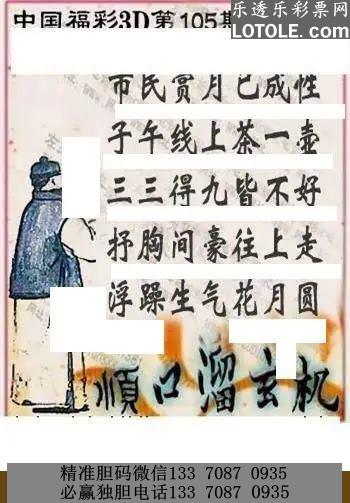 中国福彩3D第105期
乐透乐彩票网
LOTOLE.COM
市民赏月已成性
子午线上茶一壶
三三得九皆不好
抒胸间豪往上走
浮躁生气花月圆
順口溜玄机
精准胆码微信133 7087 0935
必赢独胆电话133 7087 0935